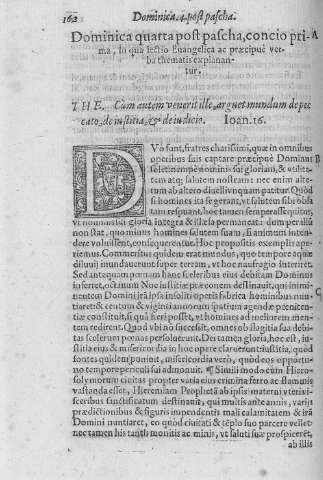 162 Dominica.4.post pascha.
Dominica quarta post pascha, concio pri- A
ma, in qua lectio Euangelica ac præcipuè ver-
ba thematis explanan-
tur.
THE. Cum autem venerit ille, arguet mundum de pec
cato, de iustitia, & de iudicio. Ioan.16.
DVo sunt, fratres charissimi, quæ in omnibus
operibus suis captare præcipuè Dominus B
solet: nempe nominis sui gloriam, & vtilita-
tem atq; salutem nostram: nec enim alte-
rum ab altero diuelli vnquam patitur. Quòd
si homines ita se gerant, vt salutem sibi obla
tam respuant, hoc tamen semper assequitur,
vt nominis sui gloria integra & illæsa permaneat: dum per illum
non stat, quo minus homines salutem suam, si animum inten-
dere voluissent, consequerentur. Hoc propositis exemplis ape-
riemus. Commeritus quidem erat mundus, quo tempore aquæ
diluuij inundauerunt super terram, vt hoc naufragio interiret.
Sed antequam pœnam hanc sceleribus eius debitam Dominus
inferret, octauum Noe iustitiæ præconem destinauit, qui immi-
nentem Domini irã ipsa insoliti operis fabrica hominibus nun- C
tiaret: & centum & viginti annorum spatium agendæ pœniten-
tiæ constituit, si quà fieri posset, vt homines ad meliorem men-
tem redirent. Quod vbi nõ successit, omnes ob illagitia sua debi-
tas scelerum pœnas persoluerunt. Dei tamen gloria, hoc est, iu-
stitia eius & misericordia in hoc opere claret: erunt iustitia, quòd
sontes quidem puniuit, misericordia verò, quòd eos opportu-
no tempore periculi sui admonuit. ¶ Simili modo cùm Hiero-
solymorum ciuitas propter varia eius crimina ferro ac flammis
vastanda esset, Hieremiam Prophetã ab ipsis materni vteri vi-
sceribus sanctificatum destinauit, qui multis ante annis, varijs
prædictionibus & figuris impendentis mali calamitatem & irã
Domini nuntiaret, eo quòd ciuitati & tẽplo suo parcere vellet:
nec tamen his tantis monitis ac minis, vt saluti suæ prospiceret,
ab illis